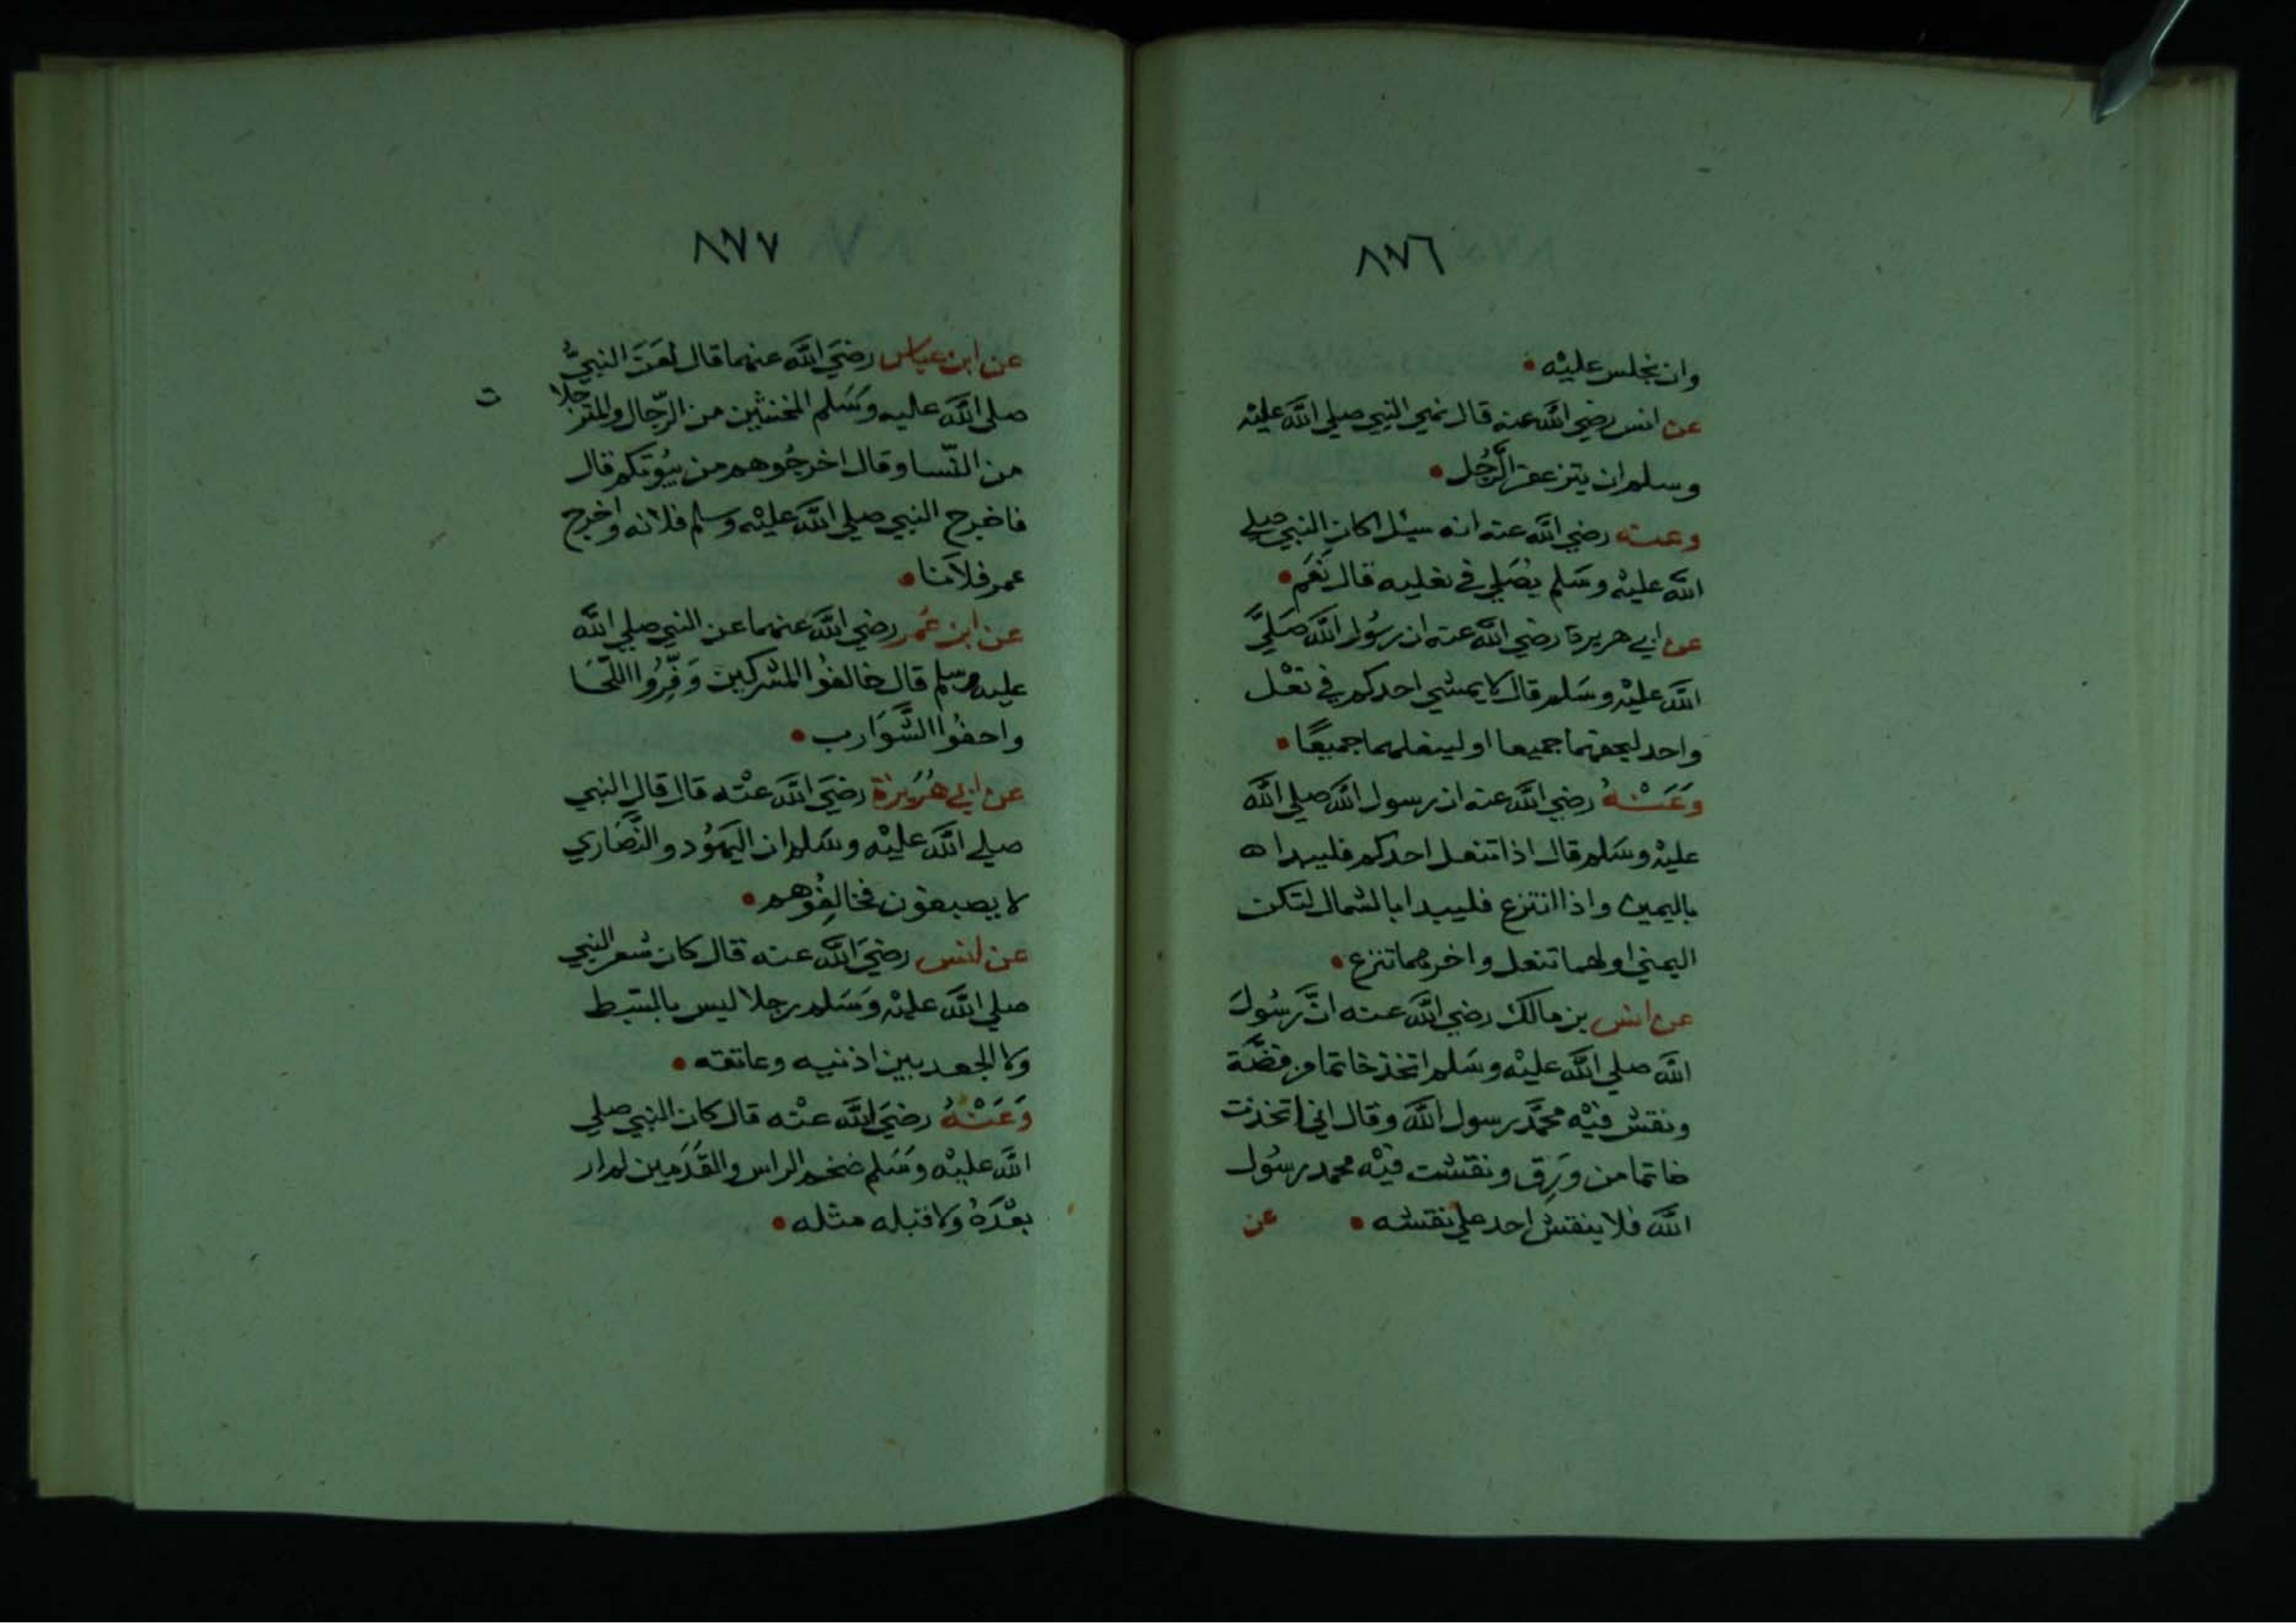 ٨٧٦
وان نجلس عليه
عن انس رضي الله عنه قال نهي النبي صلي الله عليه
وسلم ان يتزعفر الرجل
وعنه رضي الله عنه انه سئل اكان النبي صلي
الله عليه وسلم يصلي في نعليه قال نعم
عن ابي هريرة رضي الله عنه ان رسول الله صلي
الله عليه وسلم قال لا يمشي احدكم في نعل
واحد ليحفهما جميعا او لينعلهما جميعًا
وعنه رضي الله عنه ان رسول الله صلي الله
عليه وسلم قال اذا تنعل احدكم فليبدا ه
باليمين واذا انتزع فليبدا بالشمال لتكن
اليمني اولهما تنعل واخرهما تنزع
عن انس بن مالك رضي الله عنه انّ رسول
الله صلي الله عليه وسلم اتخذ خاتما من فضّة
ونقش فيه محمّد رسول الله وقال اني اتخذت
خاتما من ورق ونقشت فيه محمد رسول
الله فلا ينقش احد علي نقشه عن
٨٧٧
عن ابن عباس رضي الله عنهما قال لعن النبيّ
صلي الله عليه وسلم المخنثين من الرّجال والمترجلا ت
من النّسا وقال اخرجوهم من بيوتكم قال
فاخرج النبي صلي الله عليه وسلم فلانه واخرج
عمر فلانا
عن ابن عمر رضي الله عنهما عن النبي صلي الله
عليه وسلم قال خالفوا المشركين وفّروا اللّحا
واحفوا الشّوارب
عن ابي هريرة رضي الله عنه قال قال النبي
صلي الله عليه وسلم ان اليهود والنّصاري
لا يصبغون فخالفوهم
عن انس رضي الله عنه قال كان شعر النبي
صلي الله عليه وسلم رجلا ليس بالسبط
ولا الجعد بين اذنيه وعاتقه
وعنه رضي الله عنه قال كان النبي صلي
الله عليه وسلم ضخم الراس والقدمين لم ار
بعده ولا قبله مثله